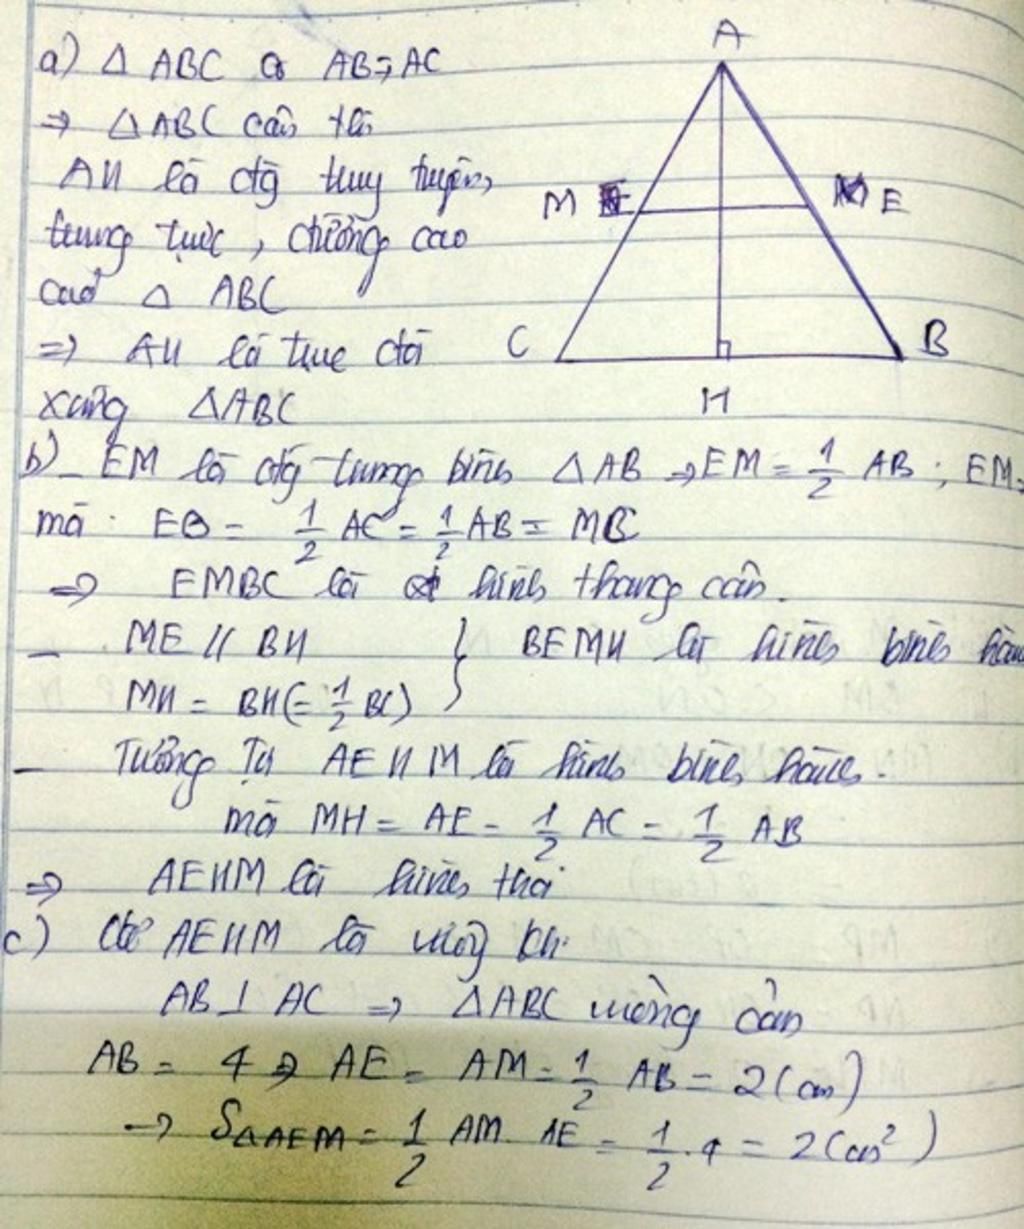 a) Δ ABC có AB = AC
⇒ Δ ABC cân tại
AH là đg trug tuyến,
trung trực, đường cao
của Δ ABC
⇒ AH là trục đối
xứng ΔABC
A
M E
C B
H
b) - EM là đg trung bình ΔAB ⇒ EM = 1/2 AB ; EM
mà: EB = 1/2 AC = 1/2 AB = MC
⇒ EMBC là hình thang cân.
- ME // BH
MH = BH (= 1/2 BC) } BEMH là hình bình hàn
- Tương Tự AEHM là hình bình hành.
mà MH = AE = 1/2 AC = 1/2 AB
⇒ AEHM là hình thoi
c) để AEHM là vuông khi
AB ⊥ AC ⇒ ΔABC vuông cân
AB = 4 ⇒ AE = AM = 1/2 AB = 2 (cm)
→ SΔAEM = 1/2 AM. AE = 1/2 . 4 = 2 (cm²)